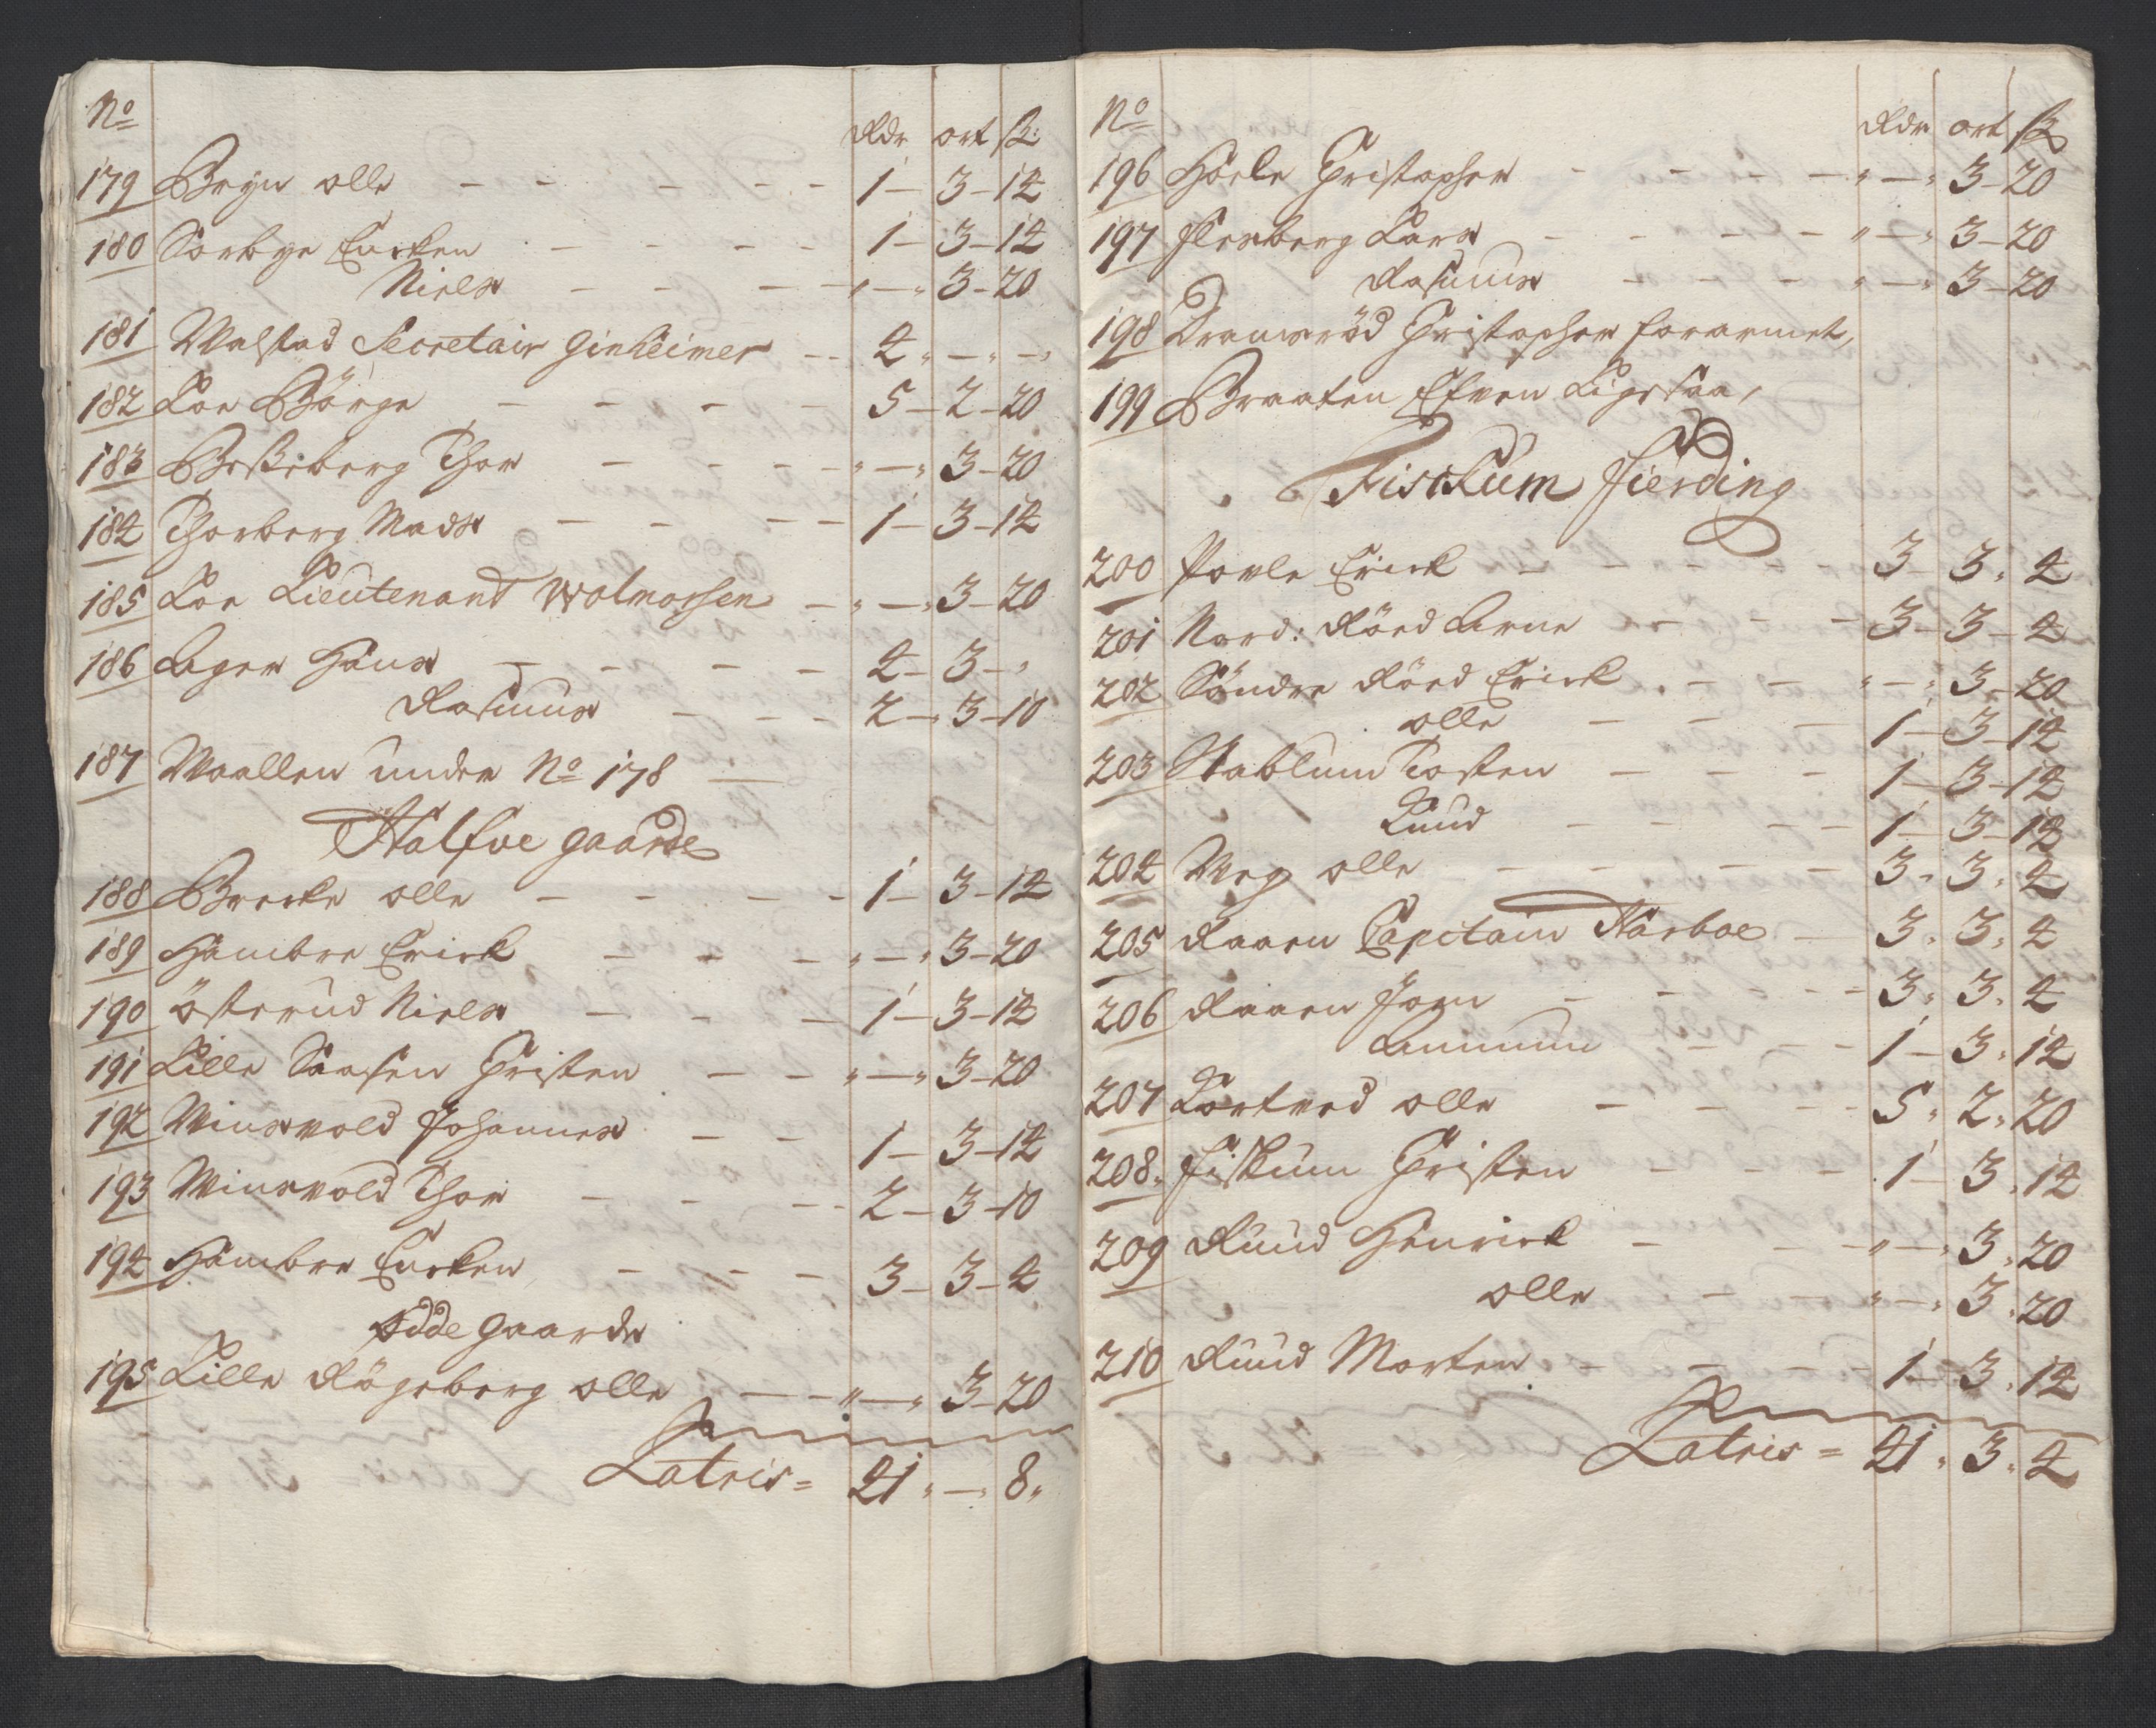 No
Rdr ort ß:
179 Bryn olle - - - - 1 - 3 - 14
180 Sørbye Encken - - - 1 - 3 - 14
Niels - - - " - " 3 - 20
181 Walstad Secretair Ginheimer - - 4 " - " - "
182 Loe Börge - - - - 5 - 2 - 20
183 Beßeberg Thor - - - " - " 3 - 20
184 Thorberg Mads - - - 1 - 3 - 14
185 Loe Lieutenant Wolmorsen - " - " 3 - 20
186 Ager Hans - - - - 4 - 3 - "
Rasmus - - - 2 - 3 - 10
187 Waallen under No 178 -
Halfve gaarde
188 Brecke olle - - - - 1 - 3 - 14
189 Hambre Erick - - - " - " 3 - 20
190 Østerud Niels - - - 1 - 3 - 14
191 Lille Saasen Christen - - " - " 3 - 20
192 Winsvold Johannes - - 1 - 3 - 14
193 Winsvold Thor - - - 2 - 3 - 10
194 Hambre Encken - - - 3 - 3 - 4
Ødde gaarde
195 Lille Rögeberg olle - - " - " 3 - 20
Latris = 41 " - " 8 "
No
Rdr ort ß
196 Hoele Christopher - - - " - " 3 - 20
197 Flesberg Lars - - - - " - " 3 - 20
Rasmus - - - " - " 3 - 20
198 Dramsröd Christopher forarmet,
199 Braaten Efven Ligesaa,
Fisckum fierding
200 Povle Erick - - - - 3 - 3 " 4
201 Nord: Röed Arne - - - 3 - 3 - 4
202 Söndre Röed Erick - - " - " 3 - 20
olle - - - 1 - 3 - 14
203 Stablum Tosten - - - 1 - 3 - 14
Knud - - - 1 - 3 - 14
204 Weg olle - - - - 3 " 3 " 4
205 Raaen Capitain Narboe - 3 " 3 " 4
206 Raaen Joen - - - - 3 " 3 " 4
Ammun - - - 1 - 3 " 14
207 Kortved olle - - - 5 " 2 " 20
208 " Fiskum Christen - - - 1 - 3 " 14
209 Ruud Henrick - - - " - " 3 " 20
olle - - " - " 3 " 20
210 Ruud Morten - - - 1 - 3 " 14
Latris = 41 " 3 " 4